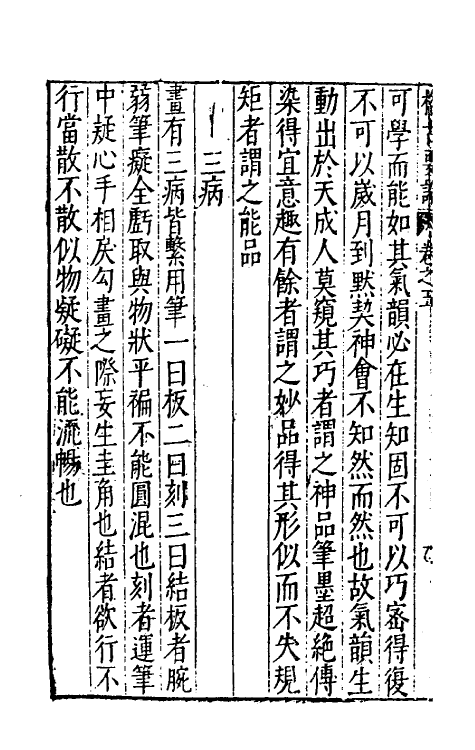 可學而能如其氣韻必在生知固不可以巧密得復
不可以歲月到默契神會不知然而然也故氣韻生
動出於天成人莫窺其巧者謂之神品筆墨超絕傳
染得宜意趣有餘者謂之妙品得其形似而不失規
矩者謂之能品
三病
畫有三病皆繫用筆一曰板二曰刻三曰結板者腕
弱筆癡全虧取與物狀平褊不能圓混也刻者運筆
中疑心手相戾勾畫之際妄生圭角也結者欲行不
行當散不散似物凝礙不能流暢也